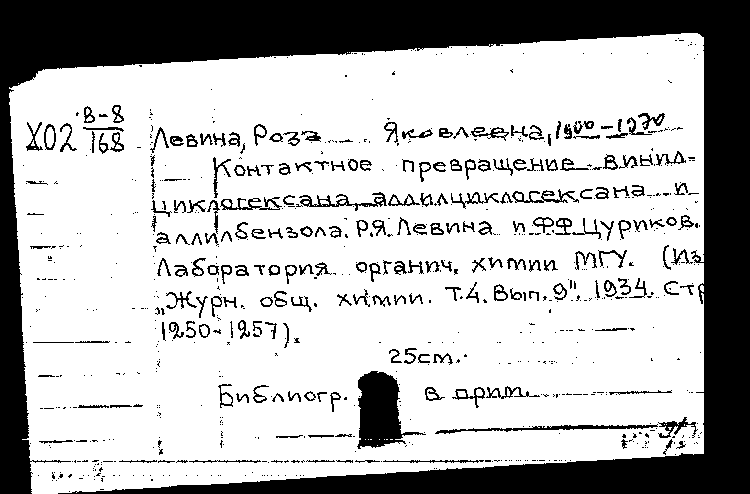 В-8
Х02 168
Левина, Роза Яковлевна, 1900-1970
Контактное превращение винил=
циклогексана, аллилциклогексана и
аллилбензола. Р.Я. Левина и Ф.Ф. Цуриков.
Лаборатория органич. химии МГУ. (Из
„Журн. общ. химии. Т.4. Вып. 9". 1934. Стр
1250-1257).
25см.
Библиогр. в прим.